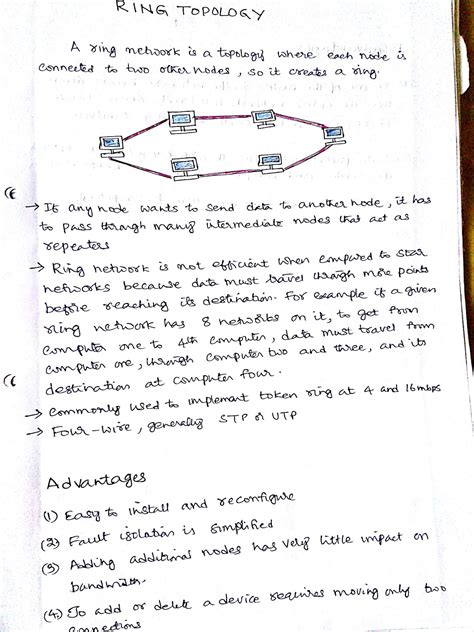 RING TOPOLOGY
A ring network is a topology where each node is
connected to two other nodes, so it creates a ring.
→ If any node wants to send data to another node, it has
to pass through many intermediate nodes that act as
repeaters
→ Ring network is not efficient when compared to star
networks because data must travel through more points
before reaching its destination. For example if a given
ring network has 8 networks on it, to get from
computer one to 4th computer, data must travel from
computer one, through computer two and three, and its
destination at computer four.
→ Commonly used to implement token ring at 4 and 16mbps
→ Four-wire, generally STP or UTP
Advantages
(1) Easy to install and reconfigure
(2) Fault isolation is simplified
(3) Adding additional nodes has very little impact on
bandwidth.
(4) To add or delete a device requires moving only two
connections